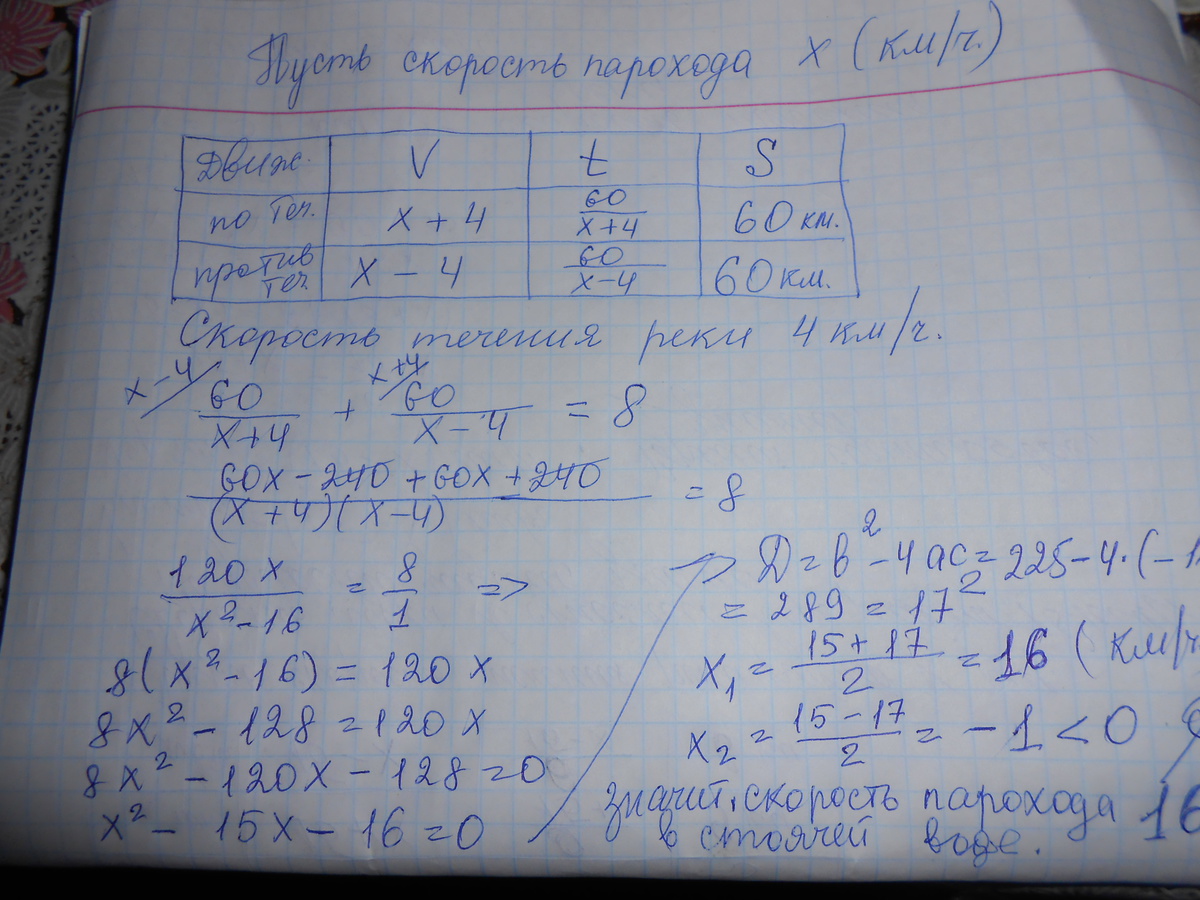 Пусть скорость парохода x (км/ч.)
Движ. V t S
по теч. x + 4 60/(x+4) 60 км.
против теч. x − 4 60/(x−4) 60 км.
Скорость течения реки 4 км/ч.
x−4/ 60/(x+4) + x+4/ 60/(x−4) = 8
(60x − 240 + 60x + 240)/((x+4)(x−4)) = 8
120x/(x²−16) = 8/1 =>
8(x²−16) = 120x
8x² − 128 = 120x
8x² − 120x − 128 = 0
x² − 15x − 16 = 0
D = b² − 4ac = 225 − 4·(−1
= 289 = 17²
x₁ = (15+17)/2 = 16 (км/ч
x₂ = (15−17)/2 = −1 < 0
значит, скорость парохода 16
в стоячей воде.